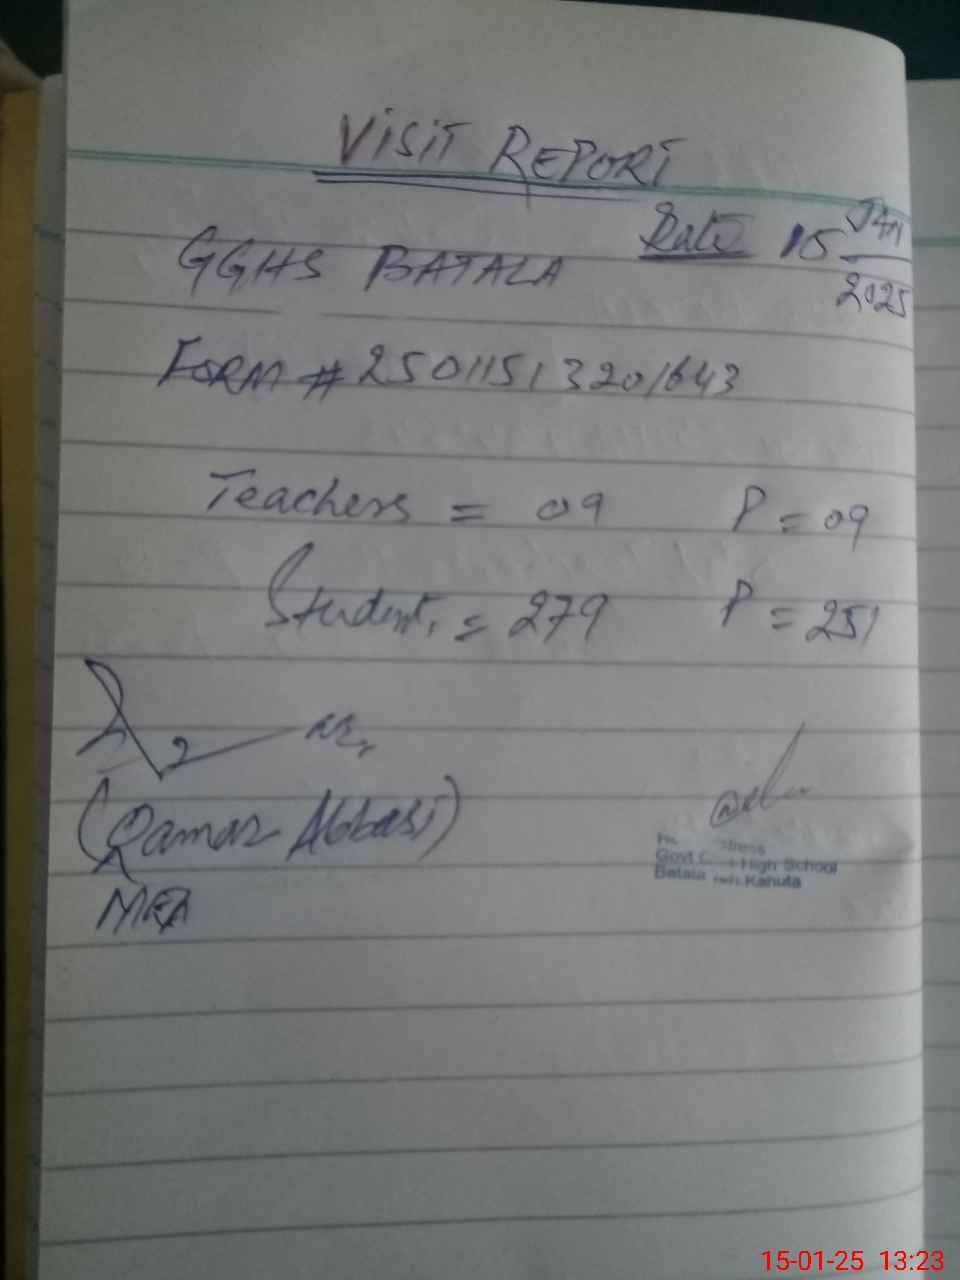 VISIT REPORT
Date 15 Jan 2025
GGHS BATALA
FORM # 25011513201643
Teachers = 09 P = 09
Students = 279 P = 251
(Qamar Abbasi)
MEA
Govt High School
Batala Kahuta
15-01-25 13:23